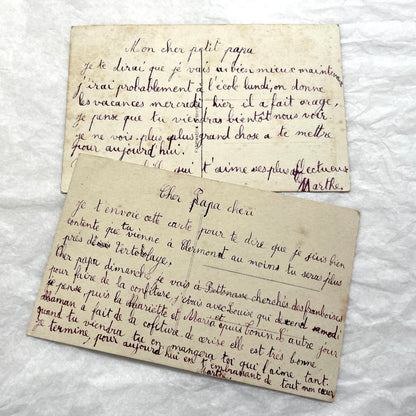 Mon cher petit papa
je te dirai que je vais bien mieux maintenant
j'irai probablement à l'école lundi, on donne
les vacances mercredi hier il a fait orage,
je pense que tu viendras bientôt nous voir
je ne vois plus plus grand chose a te mettre
pour aujourd'hui.
qui t'aime ses plus affectueux
Marthe.
Cher Papa cheri
je t'envoie cette carte pour te dire que je suis bien
contente que tu vienne à Clermont au moins tu seras plus
près de Vertolaye,
cher papa dimanche je vais à chercher des framboises
pour faire de la confiture, j'irais avec Louise qui descend samedi
je pense puis la Henriette et Maria et puis Tonin l'autre jour
maman a fait de la cofiture de cerise elle est très bonne
quand tu viendra tu en mangera toi qui l'aime tant.
je termine, pour aujourd'hui en t'embrassant de tout mon cœur
Marthe